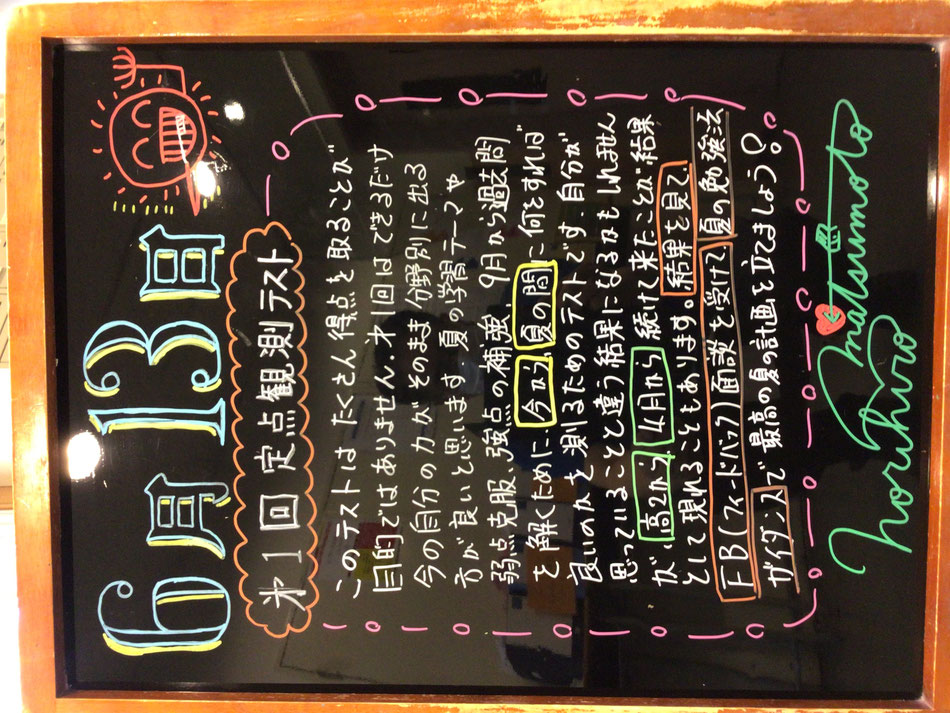 6月13日
第1回定点観測テスト
このテストは たくさん得点を取ることが
目的ではありません.第1回はできるだけ
今の自分の力がそのまま分野別に出る
方が良いと思います 夏の学習テーマや
弱点克服、強点の補強、9月から過去問
を解くために、今から、夏の間に何とすれば
良いのかを測るためのテストです.自分が
思っていることと違う結果になるかもしれません
が、高2から、4月から続けて来たことが結果
として現れることもあります。結果を見て、
FB(フィードバック)面談を受けて夏の勉強法
ガイダンスで最高の夏の計画を立てましょう?
norihiro matsumoto